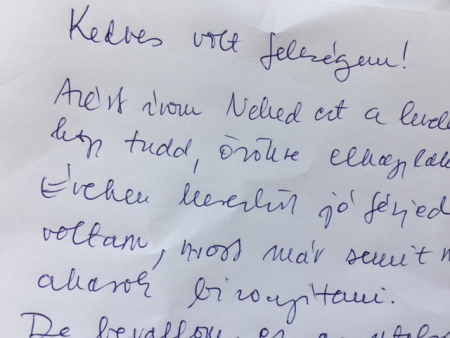 Kedves volt feleségem!
Azért írom Neked ezt a leve
hogy tudd, örökre elhagylak
Éveken keresztül jó férjed
voltam, most már semit n
akarok bizonyítani.
De bevallom, ez a